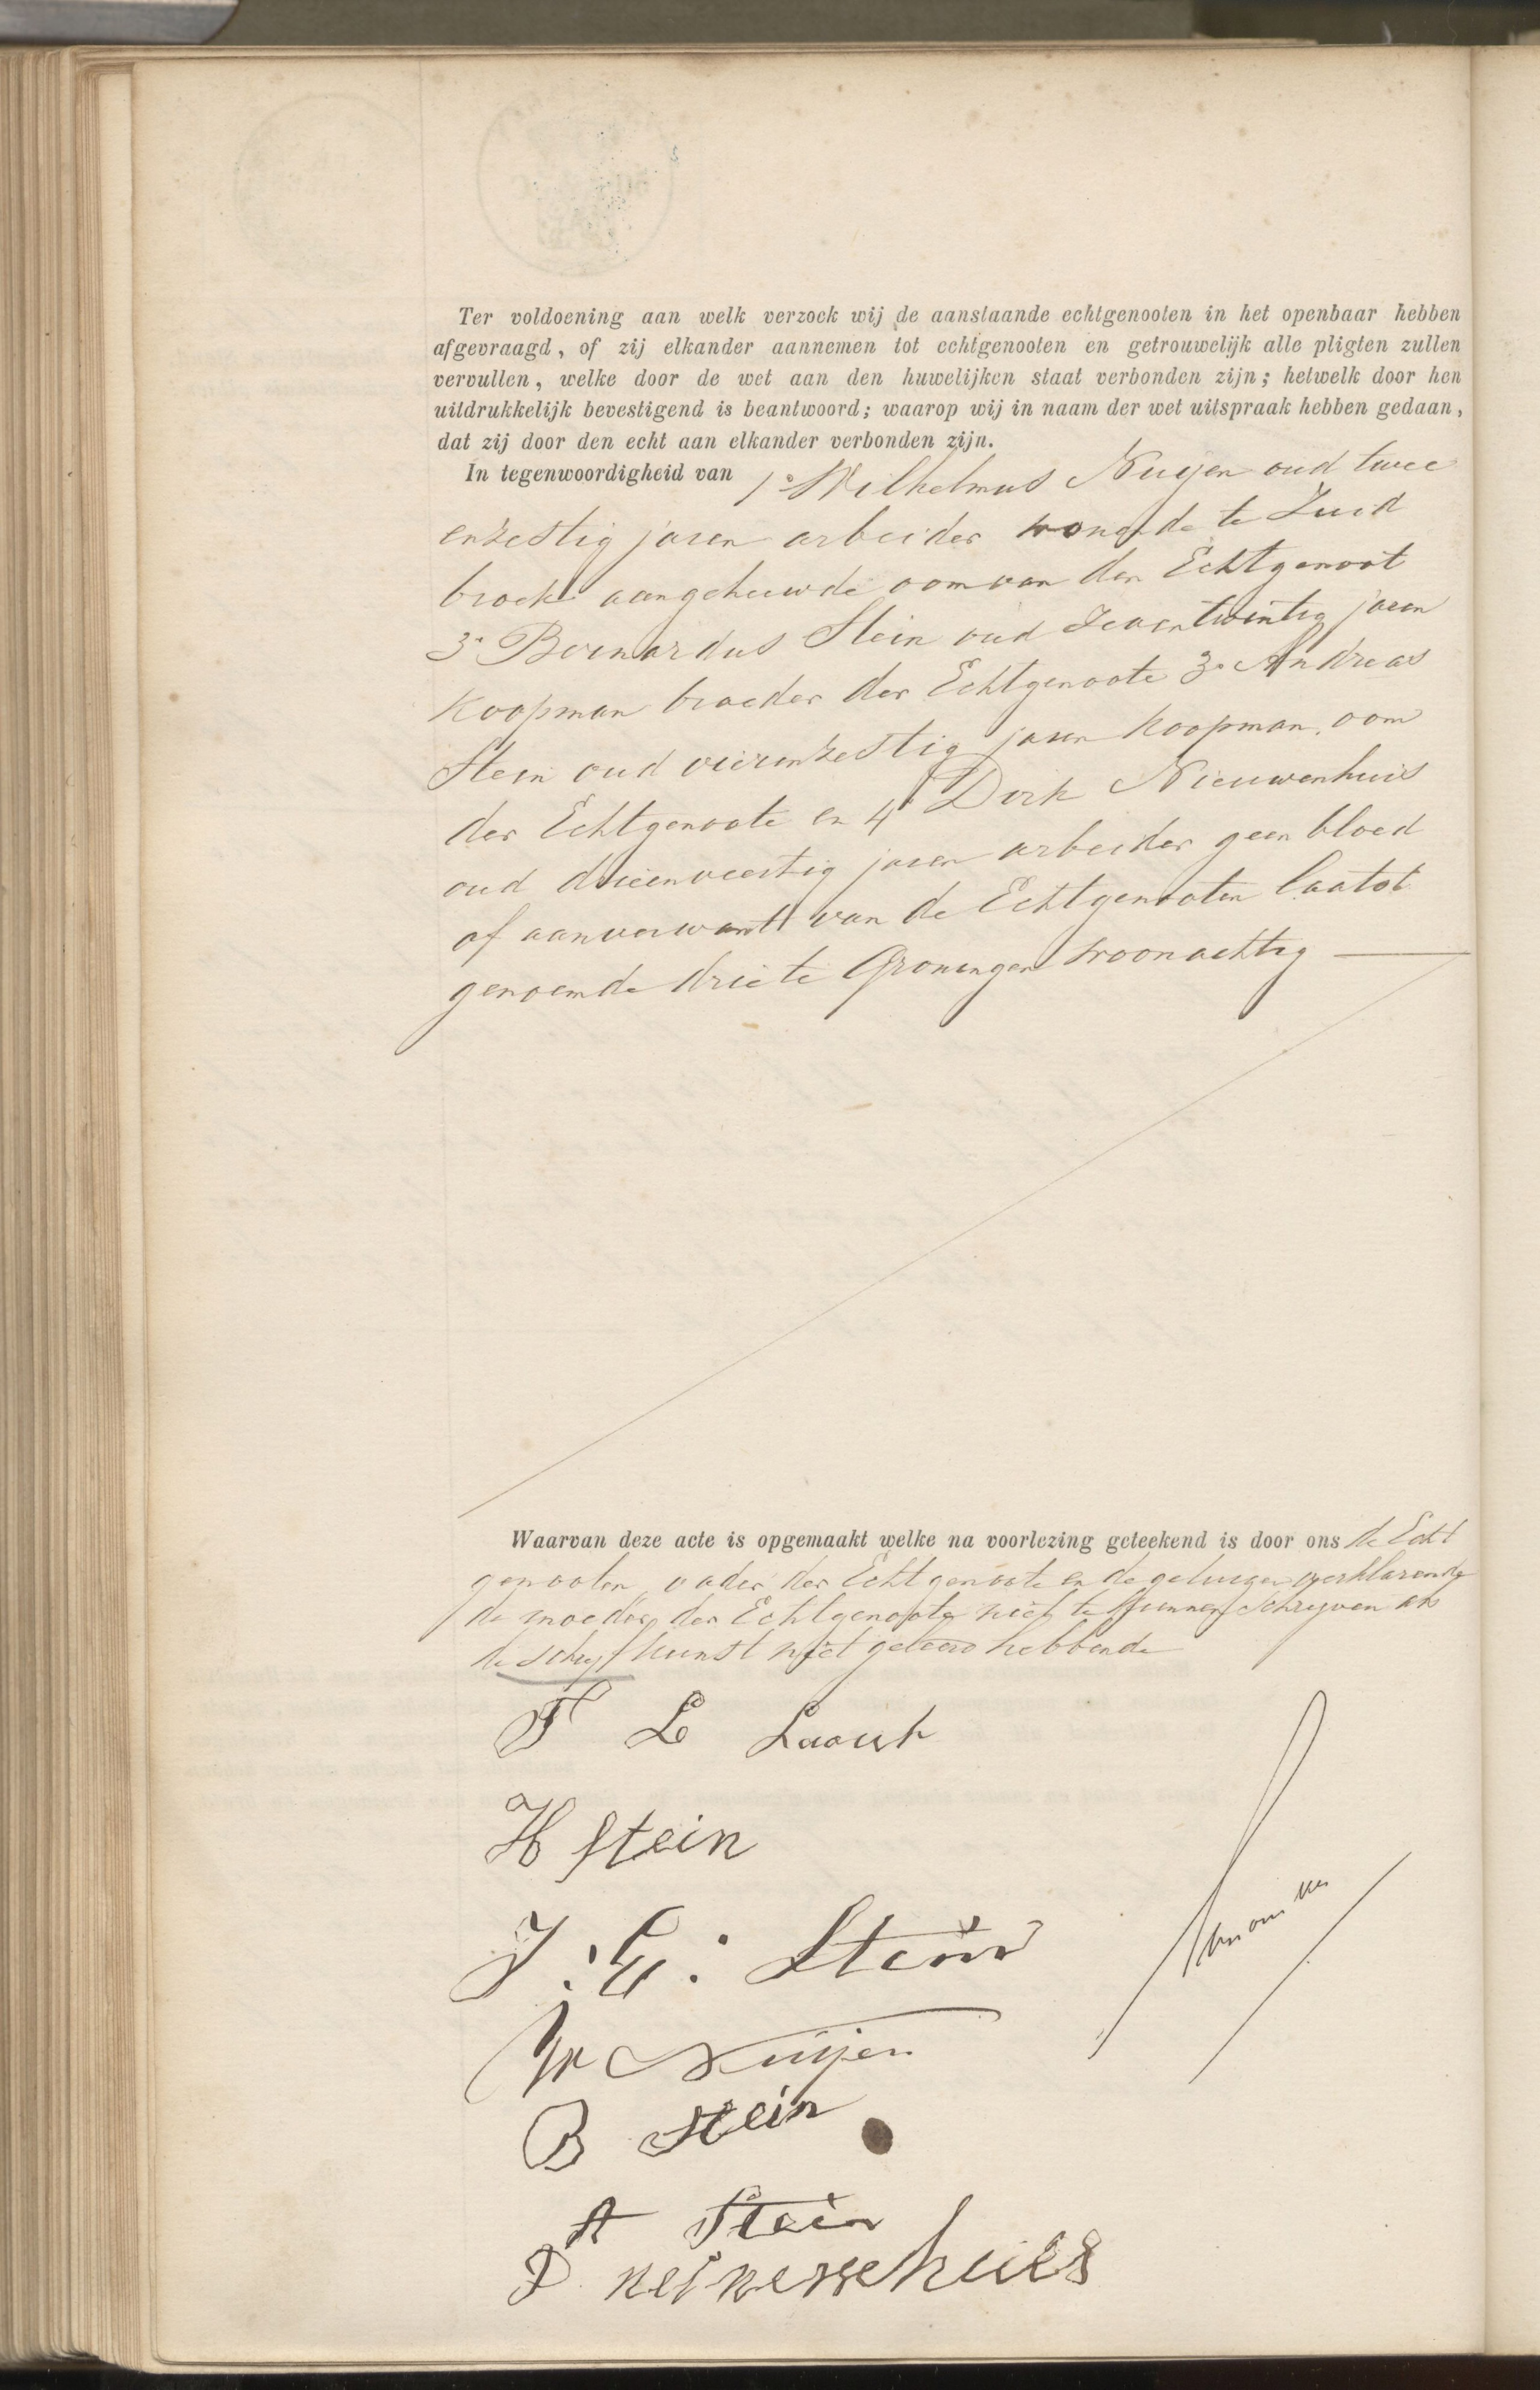 Ter voldoening aan welk verzoek wij de aanstaande echtgenooten in het openbaar hebben
afgevraagd, of zij elkander aannemen tot echtgenooten en getrouwelijk alle pligten zullen
vervullen, welke door de wet aan den huwelijken staat verbonden zijn; hetwelk door hen
uitdrukkelijk bevestigend is beantwoord; waarop wij in naam der wet uitspraak hebben gedaan,
dat zij door den echt aan elkander verbonden zijn.
In tegenwoordigheid van 1° Wilhelmus Nuijen oud twee
enzestig jaren arbeider wonende te Zuid
broek aangehuwde oom van den Echtgenoot
3° Bernardus Stein oud zeventwintig jaren
Koopman broeder der Echtgenoote 3° Andreas
Stein oud vierenzestig jaren koopman, oom
der Echtgenoote en 4° Derk Nieuwenhuis
oud drieenveertig jaren arbeider geen bloed
of aanverwant van de Echtgenooten laatst
genoemde drie te Groningen woonachtig
Waarvan deze acte is opgemaakt welke na voorlezing geteekend is door ons de Echt
genooten, vader der Echtgenoote en de getuigen verklarende
de moeder der Echtgenoote niet te kunnen schrijven als
de schrijfkunst niet geleerd hebbende
F L
H Stein
J: G: Stein
W Nuijen
B Stein
A Stein
D